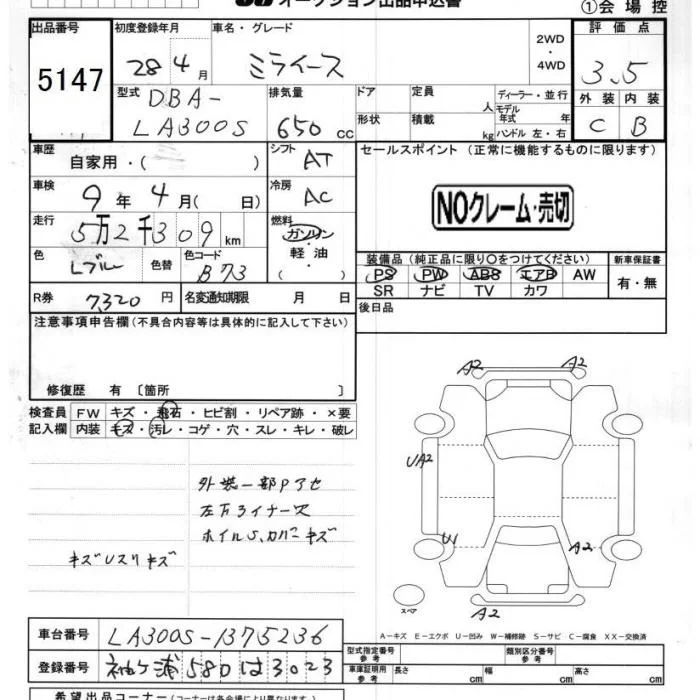 オークション出品申込書
①会場控
出品番号 初度登録年月 車名・グレード 2WD・4WD 評価点
5147
28年4月 ミライース 3.5
型式 DBA-LA300S
排気量 650 cc
ドア 定員 人 ディーラー・並行
モデル年式 年
形状 積載 kg ハンドル 左・右
外装 内装
C B
車歴 自家用・( )
シフト AT
セールスポイント(正常に機能するものに限ります)
車検 9年4月( 日)
冷房 AC
NOクレーム・売切
走行 5万2千309 km
燃料 ガソリン・軽油・( )
色 Lブルー 色替 色コード B73
装備品(純正品に限り〇をつけてください) 新車保証書
PS PW ABS エアB AW 有・無
SR ナビ TV カワ
R券 7320 円 名変通知期限 月 日
後日品
注意事項申告欄(不具合内容等は具体的に記入して下さい)
修復歴 有〔箇所 〕
検査員記入欄 FW キズ・飛石・ヒビ割・リペア跡・×要
内装 キズ・汚レ・コゲ・穴・スレ・キレ・破レ
外装一部Pアセ
ホイルS.カバーキズ
キズUスリキズ
A2 A2
UA2
U1
A2
A2
スペア
A−キズ E−エクボ U−凹み W−補修跡 S−サビ C−腐食 XX−交換済
車台番号 LA300S-1375236
登録番号 袖ヶ浦580は3023
型式指定番号 参考 類別区分番号 参考
車庫証明用 参考 長さ cm 幅 cm 高さ cm
希望出品コーナー(コーナーは各会場により異なります)